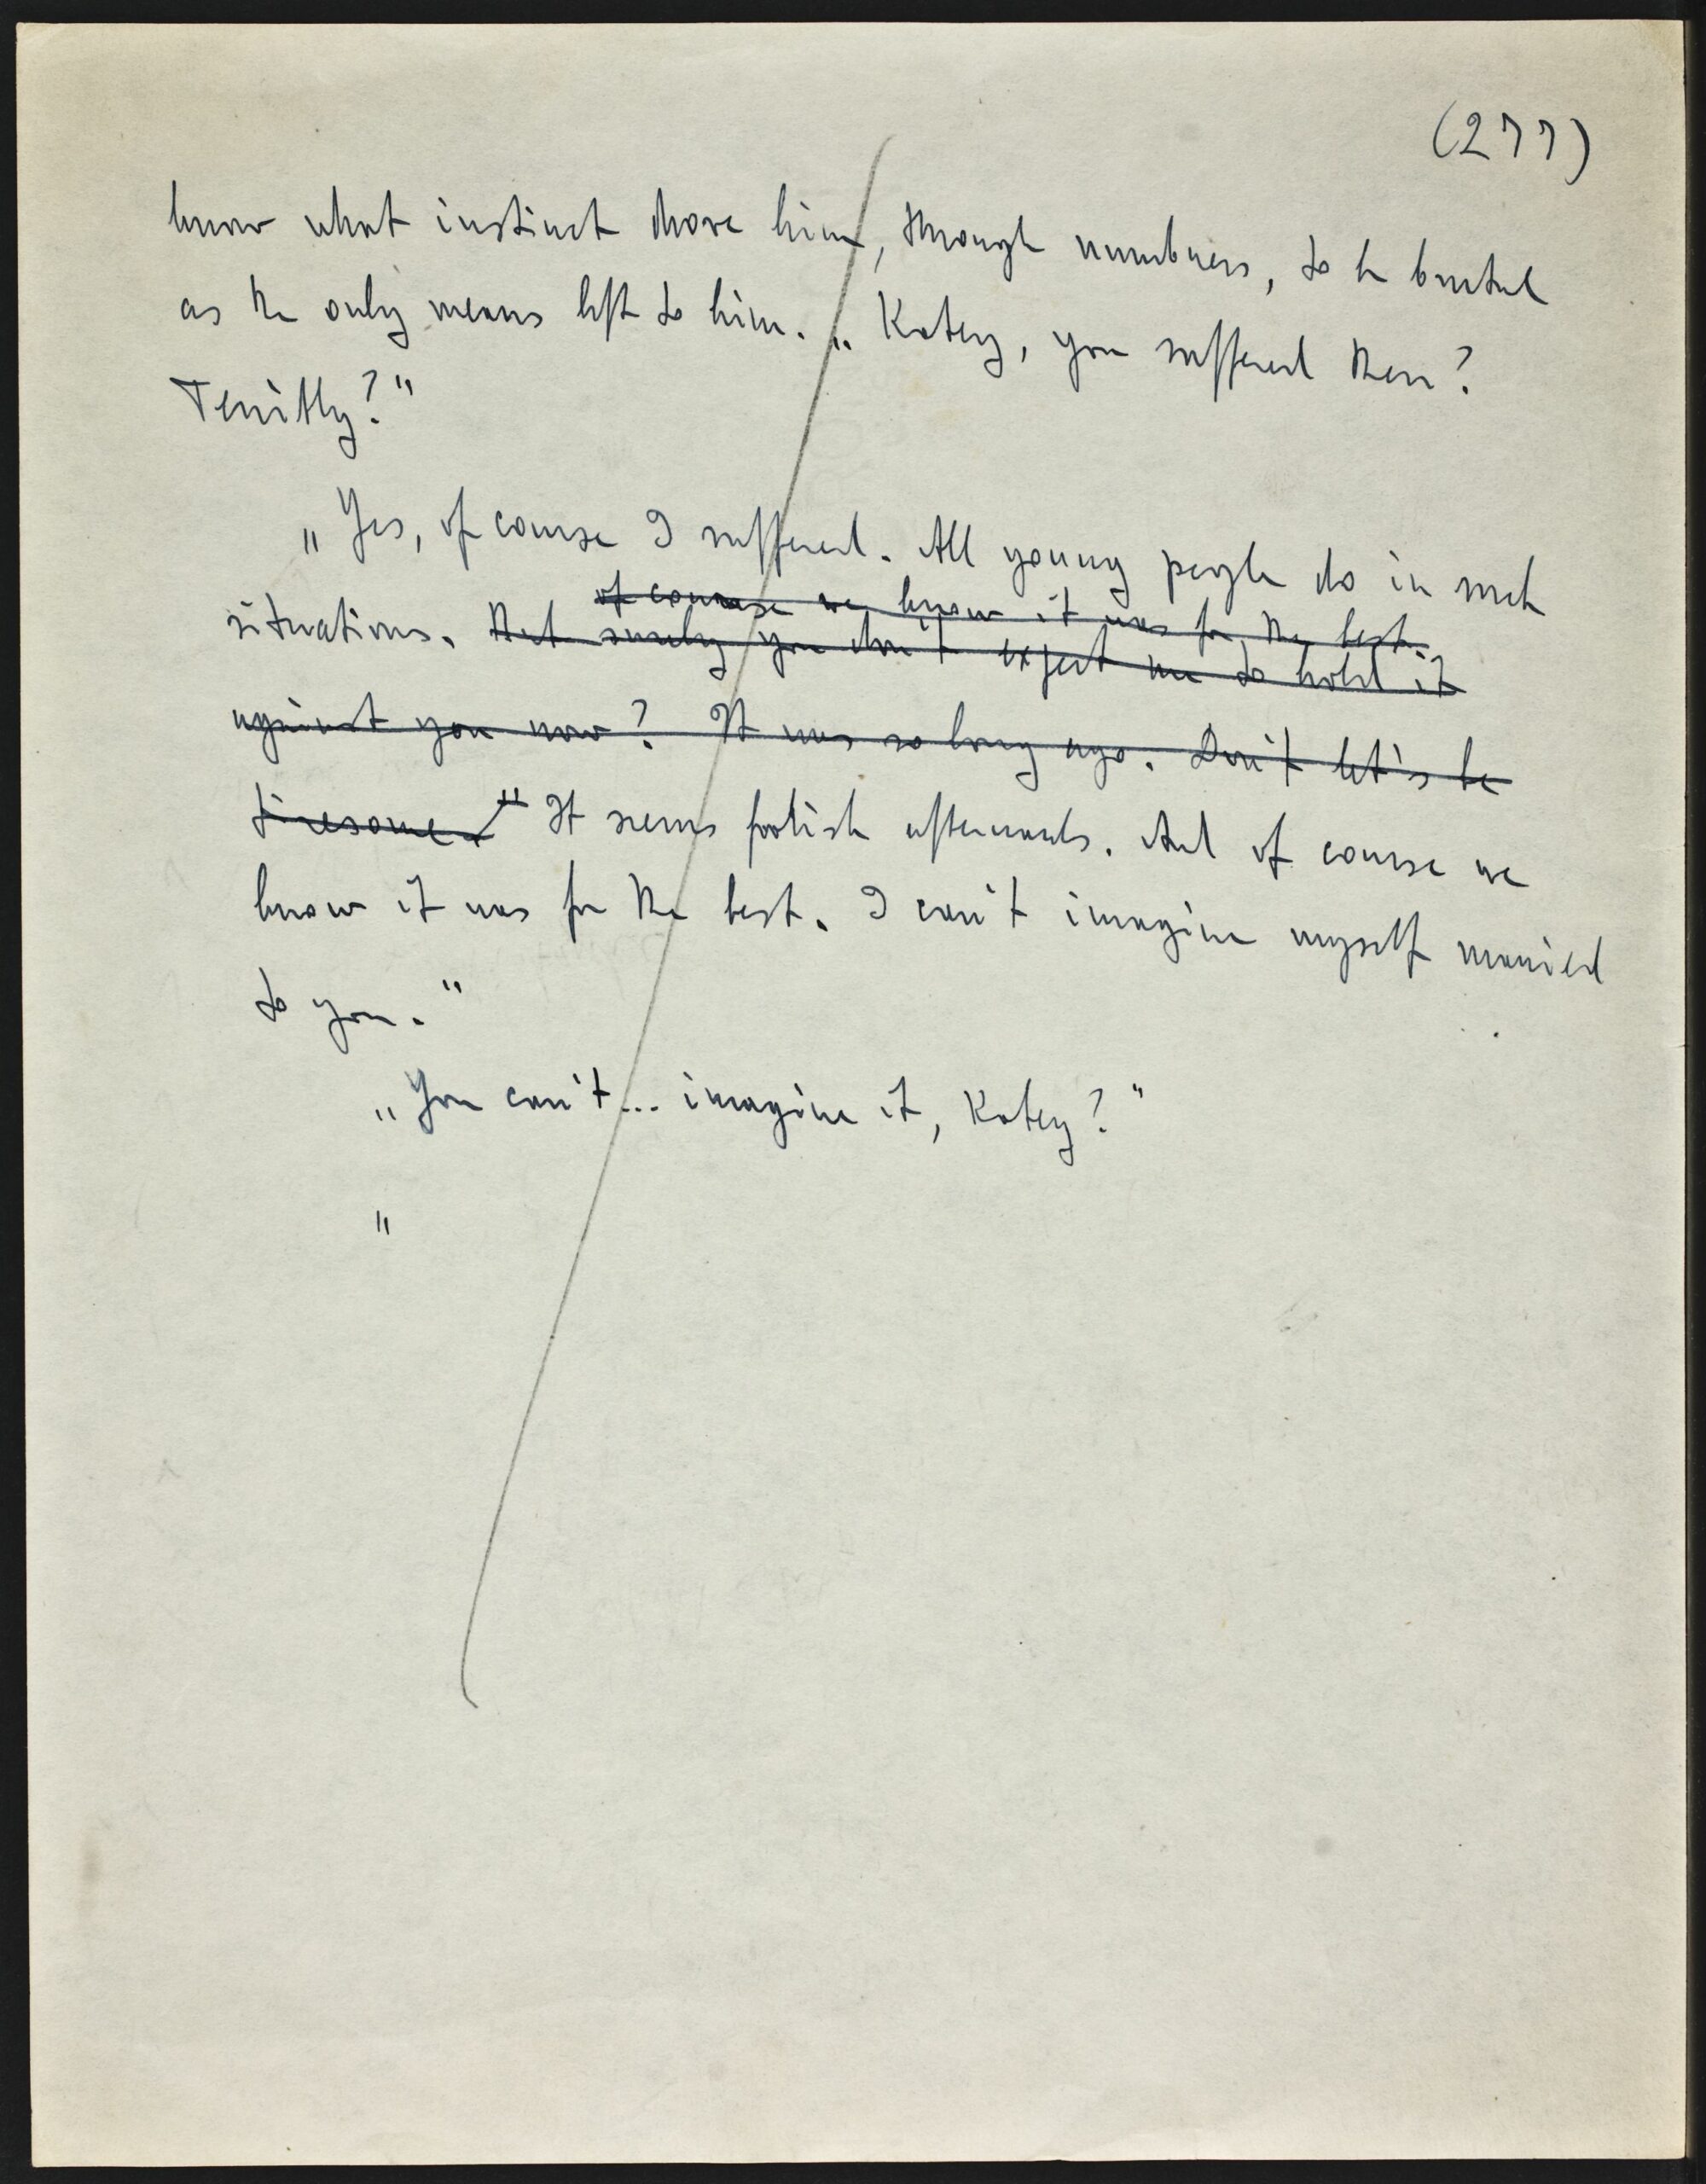 (277)
know what instinct drove him, through numbness, to be brutal
as the only means left to him. „Katey, you suffered then?
Terribly?"
„Yes, of course I suffered. All young people do in such
of course we know it was for the best.
situations. But surely you don't expect me to hold it
against you now? It was so long ago. Don't let's be
tiresome." It seems foolish afterwards. And of course we
know it was for the best. I can't imagine myself married
to you."
„You can't... imagine it, Katey?"
„